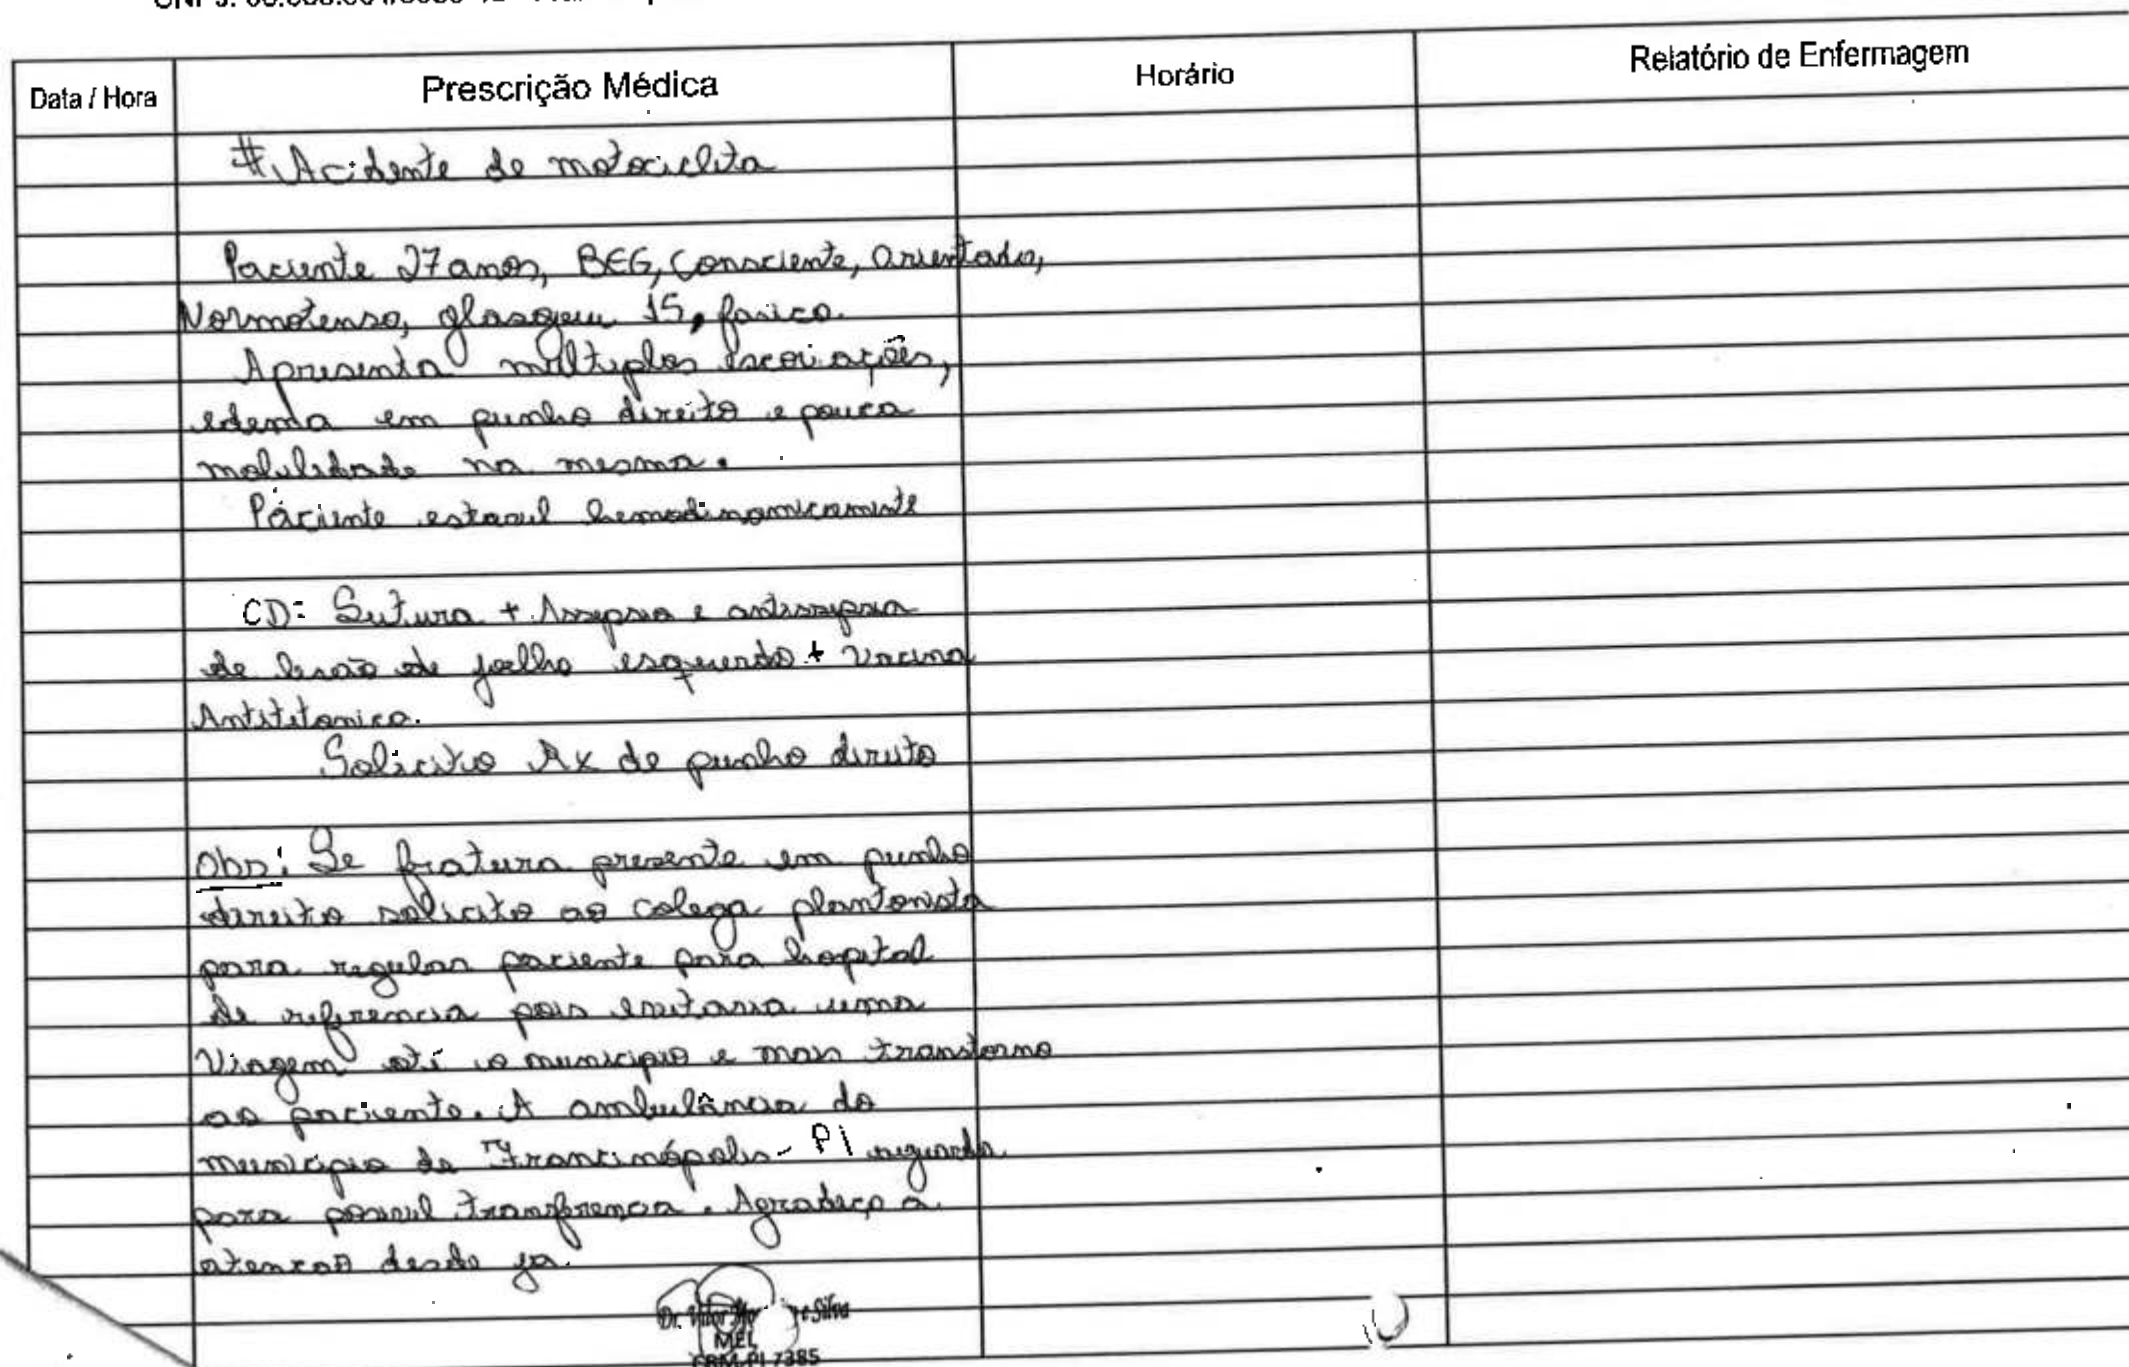 Data / Hora
Prescrição Médica
Horário
Relatório de Enfermagem
# Acidente de motociclita
Paciente 27 anos, BEG, Consciente, orientado,
Normotenso, glasgow 15,
Apresenta multiplas escoriações,
edema em punho direito e pouca
mobilidade na mesma.
Paciente estavel hemodinamicamente
CD: Sutura + Assepsia e antissepsia
de lesão de joelho esquerdo + Vacina
Antitetanica.
Solicito Rx de punho direito
Obs: Se fratura presente em punho
direito solicito ao colega plantonista
para regular paciente para hopital
de referencia pois evitaria uma
Viagem até o municipio e mais transtorno
ao paciente. A ambulância do
municipio de Francinópolis - PI aguarda
para possivel transferencia. Agradeço a
atenção desde ja.
Dr. Vitor Silva
CRM-PI 7385